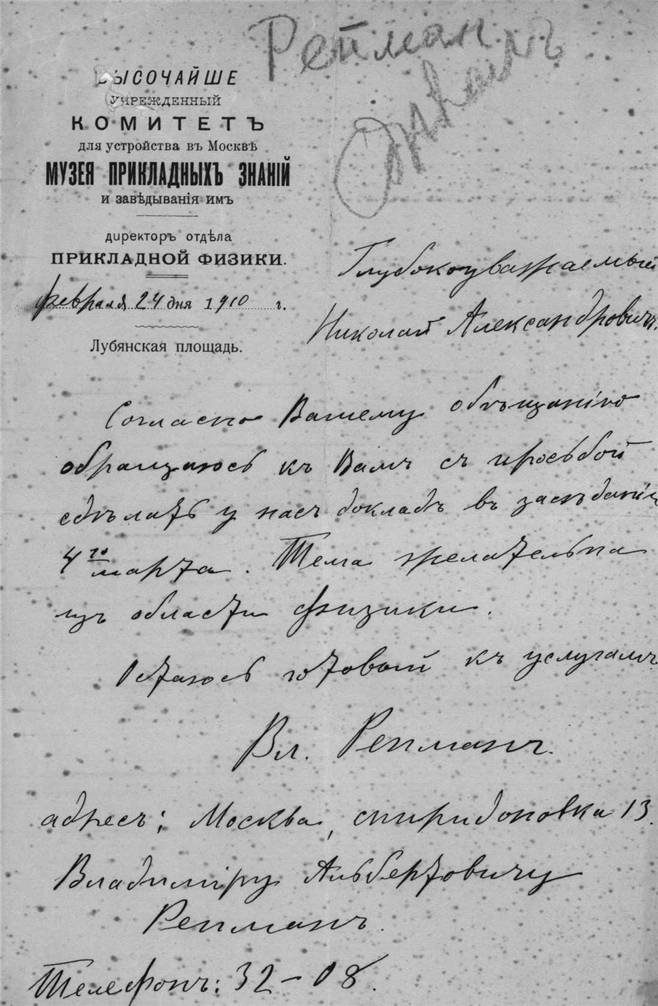 Репман
Отказъ
ВЫСОЧАЙШЕ
УЧРЕЖДЕННЫЙ
КОМИТЕТЪ
для устройства въ Москвѣ
МУЗЕЯ ПРИКЛАДНЫХЪ ЗНАНІЙ
и завѣдыванія имъ
директоръ отдѣла
ПРИКЛАДНОЙ ФИЗИКИ.
февраля 24 дня 1910 г.
Лубянская площадь.
Глубокоуважаемый
Николай Александровичъ.
Согласно Вашему обѣщанію
обращаюсь къ Вамъ съ просьбой
сдѣлать у насъ докладъ въ засѣданіи
4го марта. Тема желательна
изъ области физики.
Остаюсь готовый къ услугамъ
Вл. Репманъ.
адресъ: Москва, Спиридоновка 13.
Владиміру Альбертовичу
Репманъ.
Телефонъ: 32-08.